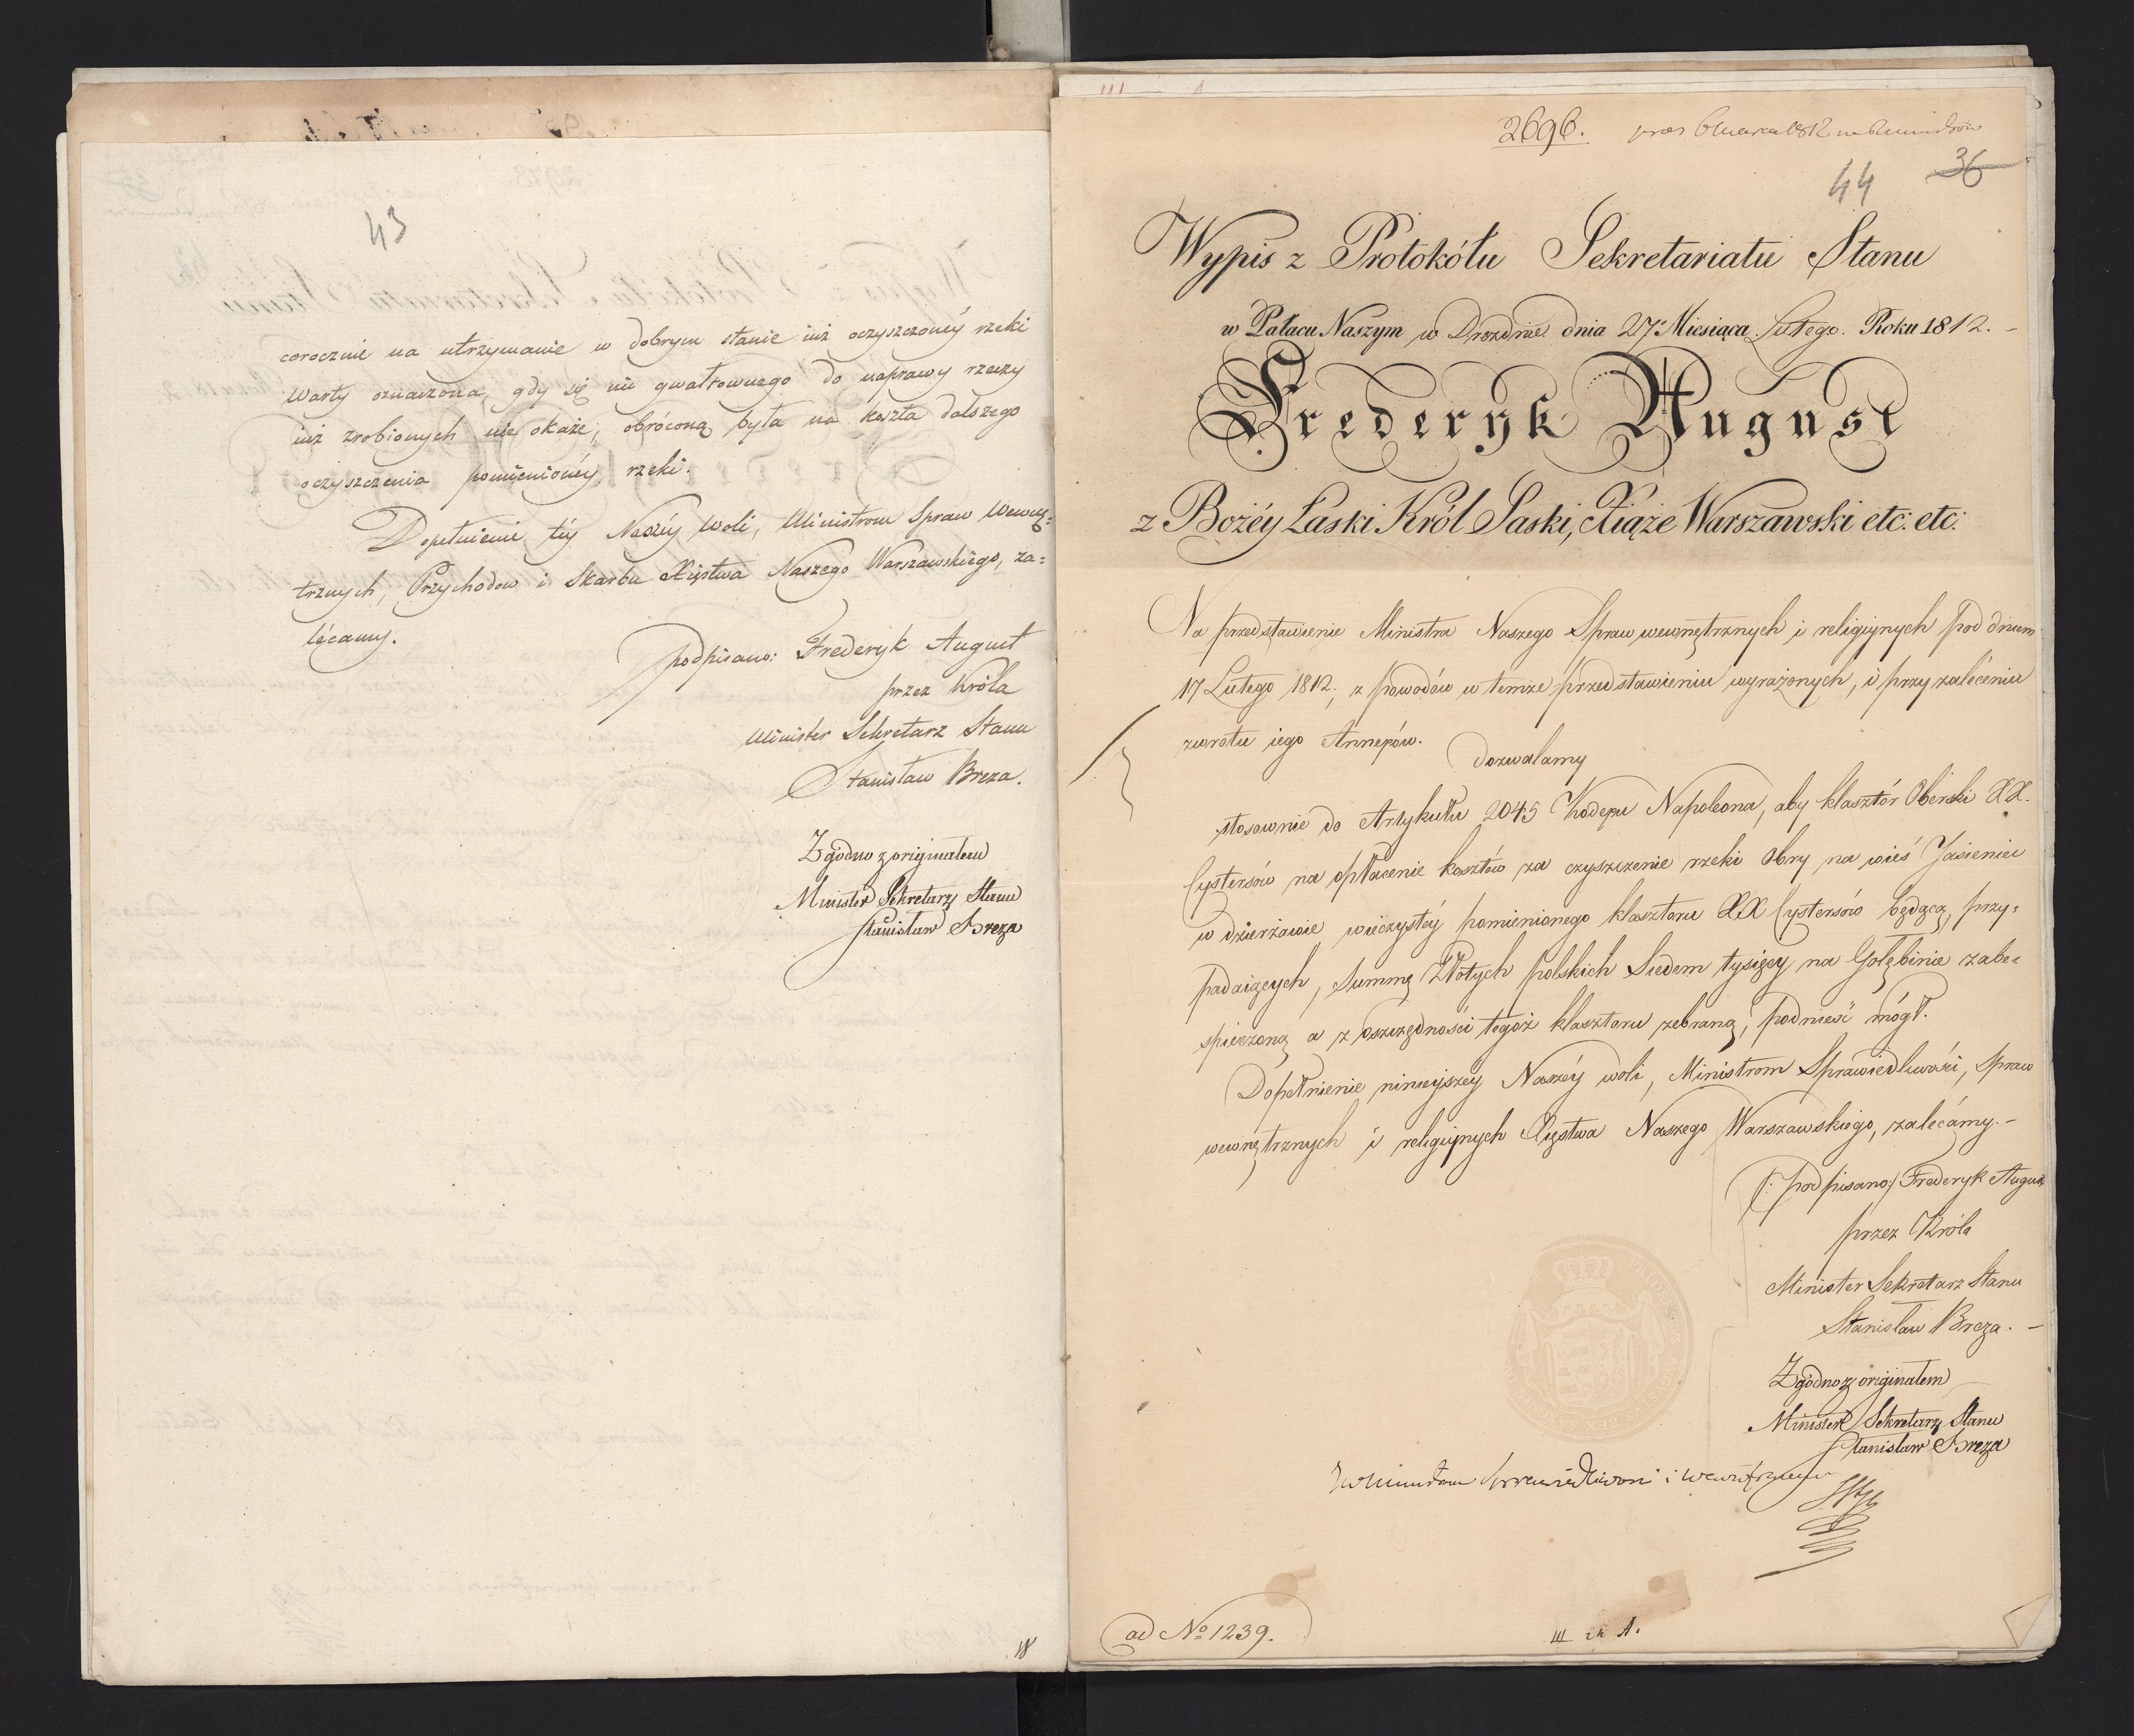 43
corocznie na utrzymanie w dobrym stanie iuż oczyszczonéy rzeki
Warty oznaczona, gdy się nic gwałtownego do naprawy rzeczy
iuż zrobionych nie okaże, obróconą była na koszta dalszego
oczyszczenia pomienionéy rzeki.
Dopełnienie téy Naszéy woli, Ministrom Spraw Wewnę=
trznych, Przychodow i Skarbu Xięstwa Naszego Warszawskiego, za=
lécamy.
podpisano: Frederyk August
przez Króla
Minister Sekretarz Stanu
Stanisław Breza.
Zgodno z originałem
Minister Sekretarz Stanu
Stanisław Breza
2696.
44 36
Wypis z Protokółu Sekretariatu Stanu
w Pałacu Naszym w Dreznie dnia 27º Miesiąca Lutego. Roku 1812. -
Frederyk August
z Bożéy Łaski Król Saski, Xiąże Warszawski etc: etc:
Na przedstawienie Ministra Naszego Spraw wewnętrznych i religiynych pod dniem
17 Lutego 1812, z powodów w temże przedstawieniu wyrażonych, i przy zaléceniu
zwrotu iego Annexów.
Dozwalamy
stosownie do Artykułu 2045 Kodexu Napoleona, aby klasztór Oberski XX.
Cystersów na opłacenie kosztów za czyszczenie rzeki Obry na wieś Jasieniec
w dzierżawie wieczystéy pomienionego klasztoru XX Cystersów będącą, przy=
padaiących, Summę Złotych polskich Siedem tysięcy na Gołębinie zabe=
spieczoną a z oszczędności tegoż klasztoru zebraną, podnieść mógł.
Dopełnienie ninieyszey Naszéy woli, Ministrom Sprawiedliwości, Spraw
wewnętrznych i religiynych Xięstwa Naszego Warszawskiego, zalécamy. -
(: podpisano:) Frederyk August
przez Króla
Minister Sekretarz Stanu
Stanisław Breza. -
Zgodno z originałem
Minister Sekretarz Stanu
Stanisław Breza
Sprawiedliwosci i Wewnętrznem
ad Nº 1239.